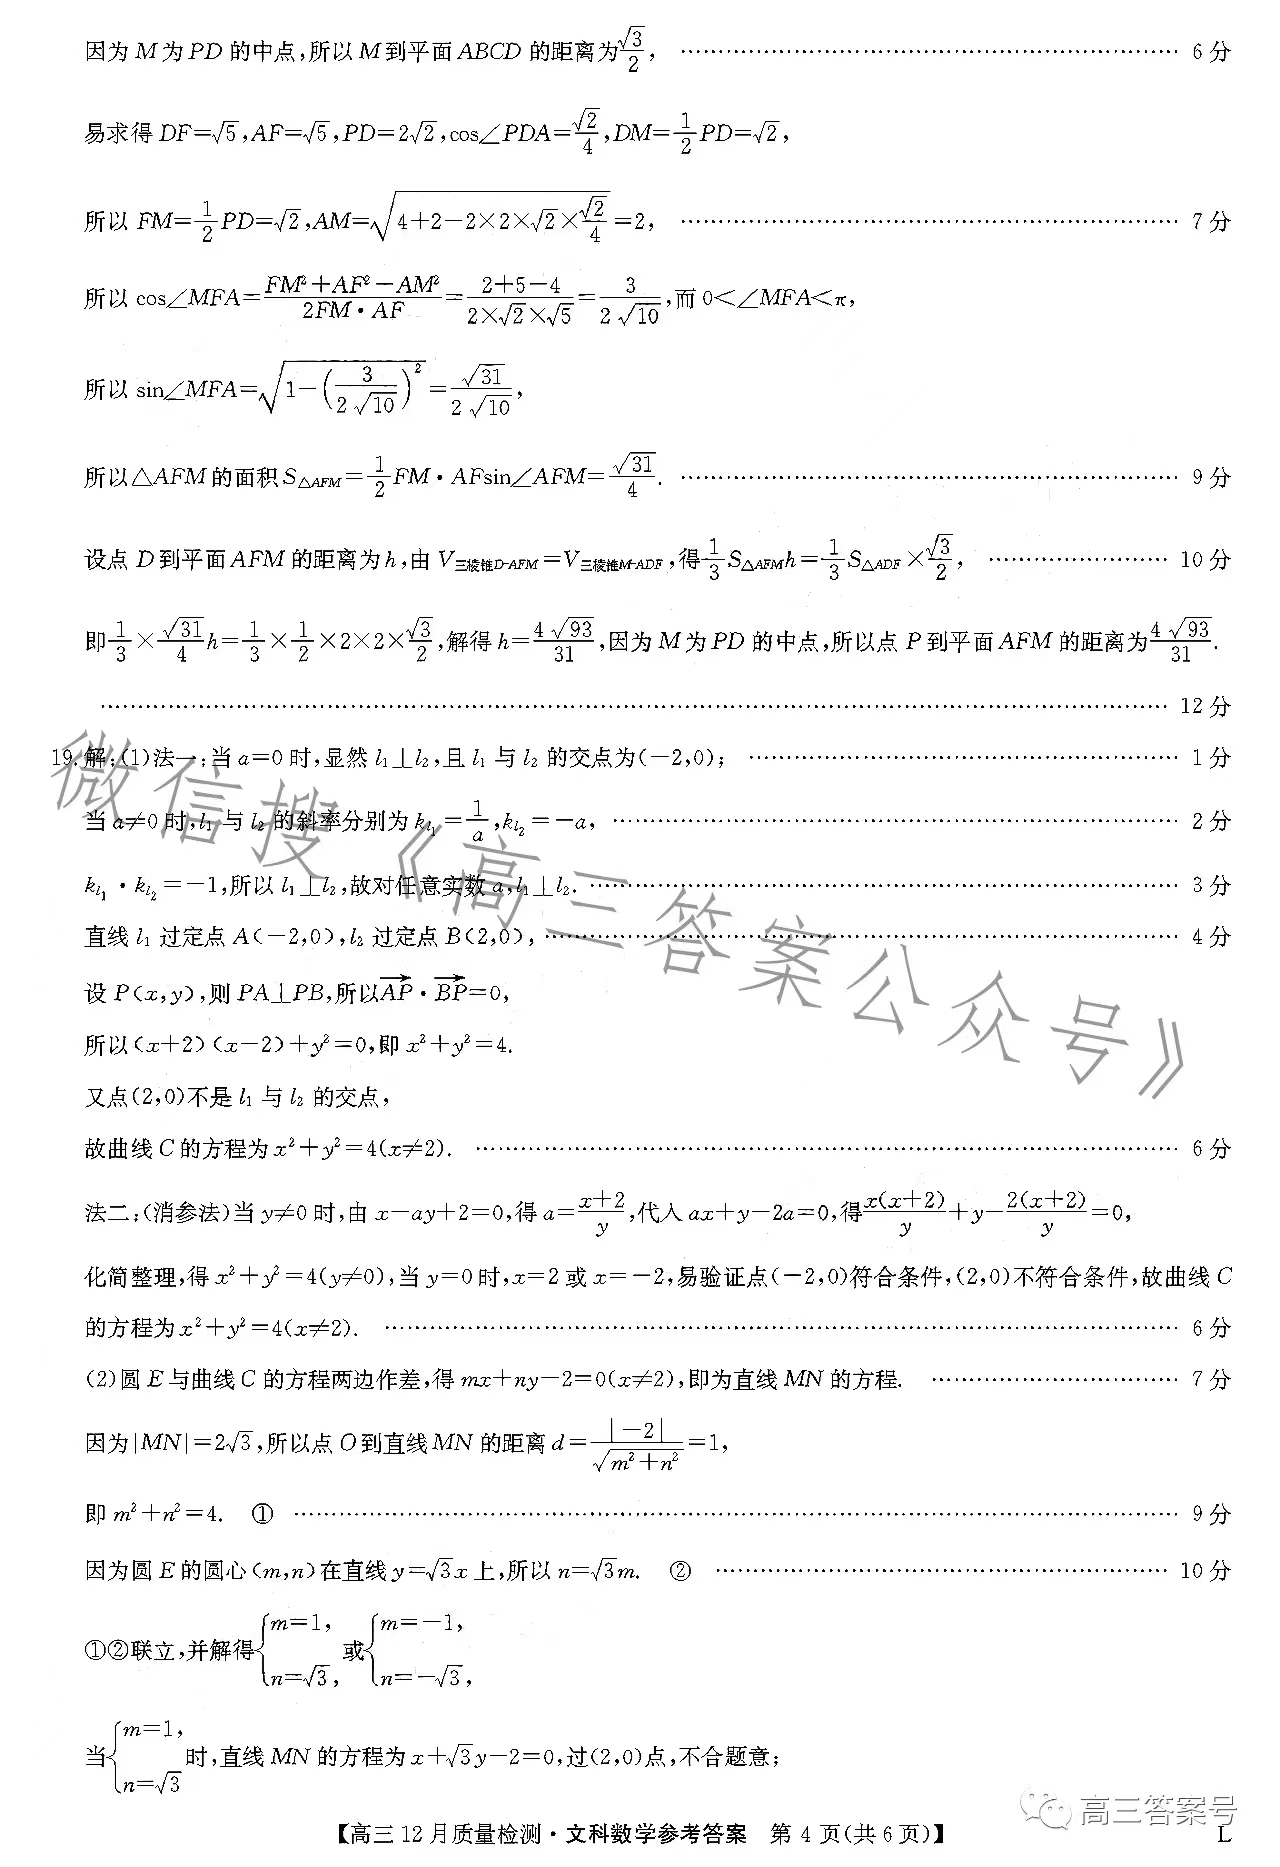 因为 M 为 PD 的中点,所以 M 到平面 ABCD 的距离为√3/2, …… 6 分
易求得 DF=√5,AF=√5,PD=2√2,cos∠PDA=√2/4,DM=1/2PD=√2,
所以 FM=1/2PD=√2,AM=√(4+2-2×2×√2×√2/4)=2, …… 7 分
所以 cos∠MFA=(FM²+AF²-AM²)/(2FM·AF)=(2+5-4)/(2×√2×√5)=3/(2√10),而 0<∠MFA<π,
所以 sin∠MFA=√(1-(3/(2√10))²)=√31/(2√10),
所以△AFM 的面积 S△AFM=1/2FM·AFsin∠AFM=√31/4. …… 9 分
设点 D 到平面 AFM 的距离为 h,由 V三棱锥D-AFM=V三棱锥M-ADF,得1/3S△AFMh=1/3S△ADF×√3/2, …… 10 分
即1/3×√31/4h=1/3×1/2×2×2×√3/2,解得 h=4√93/31,因为 M 为 PD 的中点,所以点 P 到平面 AFM 的距离为4√93/31.
…… 12 分
19.解:(1)法一:当 a=0 时,显然 l₁⊥l₂,且 l₁ 与 l₂ 的交点为(-2,0); …… 1 分
当 a≠0 时,l₁ 与 l₂ 的斜率分别为 kl₁=1/a,kl₂=-a, …… 2 分
kl₁·kl₂=-1,所以 l₁⊥l₂,故对任意实数 a,l₁⊥l₂. …… 3 分
直线 l₁ 过定点 A(-2,0),l₂ 过定点 B(2,0), …… 4 分
设 P(x,y),则 PA⊥PB,所以AP→·BP→=0,
所以(x+2)(x-2)+y²=0,即 x²+y²=4.
又点(2,0)不是 l₁ 与 l₂ 的交点,
故曲线 C 的方程为 x²+y²=4(x≠2). …… 6 分
法二:(消参法)当 y≠0 时,由 x-ay+2=0,得 a=(x+2)/y,代入 ax+y-2a=0,得x(x+2)/y+y-2(x+2)/y=0,
化简整理,得 x²+y²=4(y≠0),当 y=0 时,x=2 或 x=-2,易验证点(-2,0)符合条件,(2,0)不符合条件,故曲线 C
的方程为 x²+y²=4(x≠2). …… 6 分
(2)圆 E 与曲线 C 的方程两边作差,得 mx+ny-2=0(x≠2),即为直线 MN 的方程. …… 7 分
因为|MN|=2√3,所以点 O 到直线 MN 的距离 d=|-2|/√(m²+n²)=1,
即 m²+n²=4. ① …… 9 分
因为圆 E 的圆心(m,n)在直线 y=√3x 上,所以 n=√3m. ② …… 10 分
①②联立,并解得{m=1, n=√3, 或{m=-1, n=-√3,
当{m=1, n=√3 时,直线 MN 的方程为 x+√3y-2=0,过(2,0)点,不合题意;
微信搜《高三答案公众号》
高三答案号
【高三 12 月质量检测·文科数学参考答案 第 4 页(共 6 页)】 L